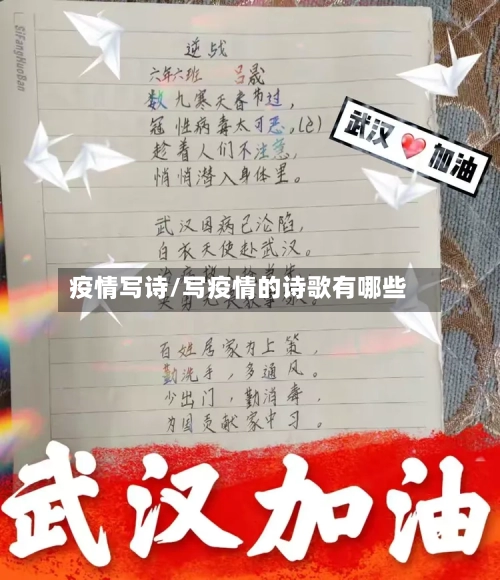 SiFangHuoBan
逆战
六年六班 吕晟
数九寒天春节过，
冠性病毒太可恶。(么)
趁着人们不注意，
悄悄潜入身体里。
武汉 加油
武汉因病已沦陷，
白衣天使赴武汉。
疫情写诗/写疫情的诗歌有哪些
百姓居家为上策，
勤洗手，多通风。
少出门，勤消毒，
为国贡献家中习。
武汉加油